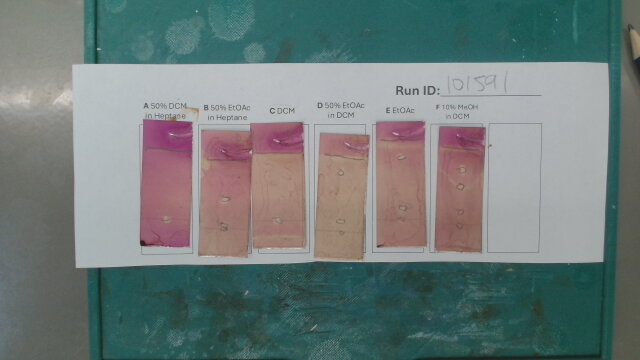 Run ID: 101591
A 50% DCM in Heptane
B 50% EtOAc in Heptane
C DCM
D 50% EtOAc in DCM
E EtOAc
F 10% MeOH in DCM